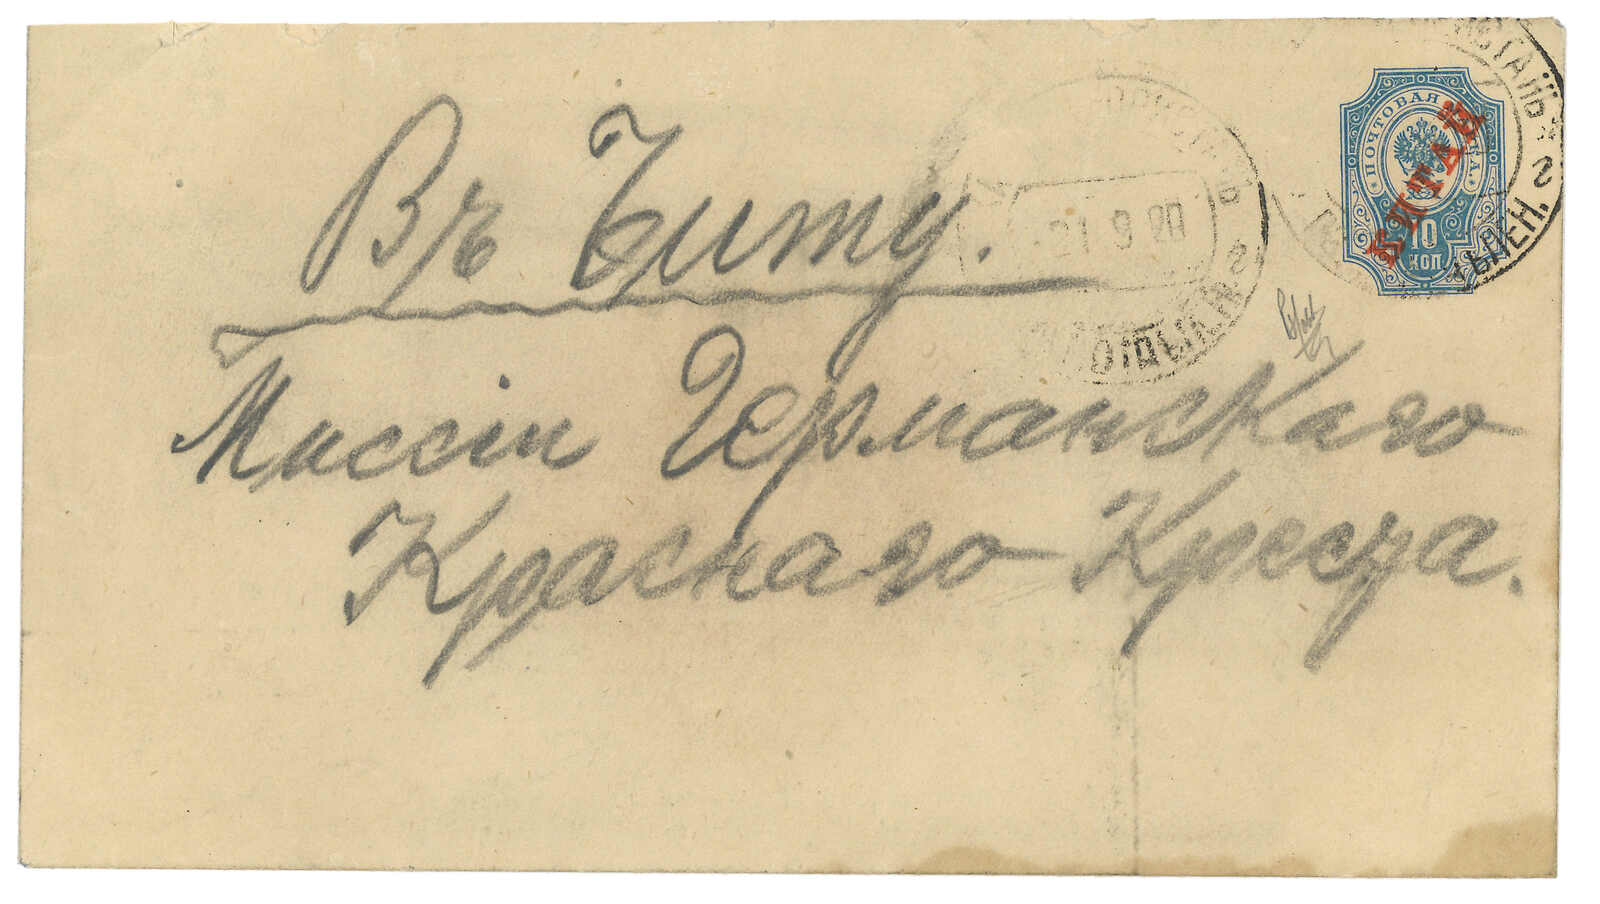 Въ Читу.
Миссіи Германскаго
Краснаго Креста.
ПОЧТОВАЯ МАРКА
КИТАЙ
10
КОП
21 9 20